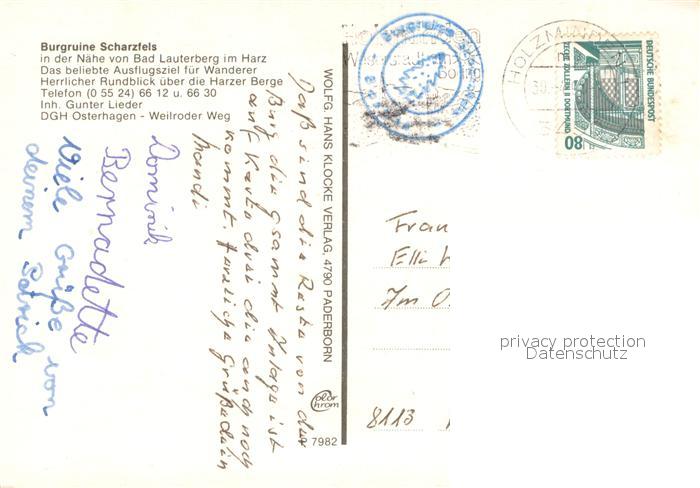 Burgruine Scharzfels
in der Nähe von Bad Lauterberg im Harz
Das beliebte Ausflugsziel für Wanderer
Herrlicher Rundblick über die Harzer Berge
Telefon (0 55 24) 66 12 u. 66 30
Inh. Gunter Lieder
DGH Osterhagen - Weilroder Weg
Daß sind die Reste von der
Burg die gsamt Anlage ist
auf Karte drei die auch noch
kommt. Herzliche Grüße dein
Mandi
Dominik
Bernadette
Viele Grüße von
deinem Patrick
WOLFG. HANS KLOCKE VERLAG, 4790 PADERBORN
Color
chrom
7982
HOLZMIND
30.
DEUTSCHE BUNDESPOST
ZECHE ZOLLERN II DORTMUND
80
Frau
Elli
Im
8113
privacy protection
Datenschutz